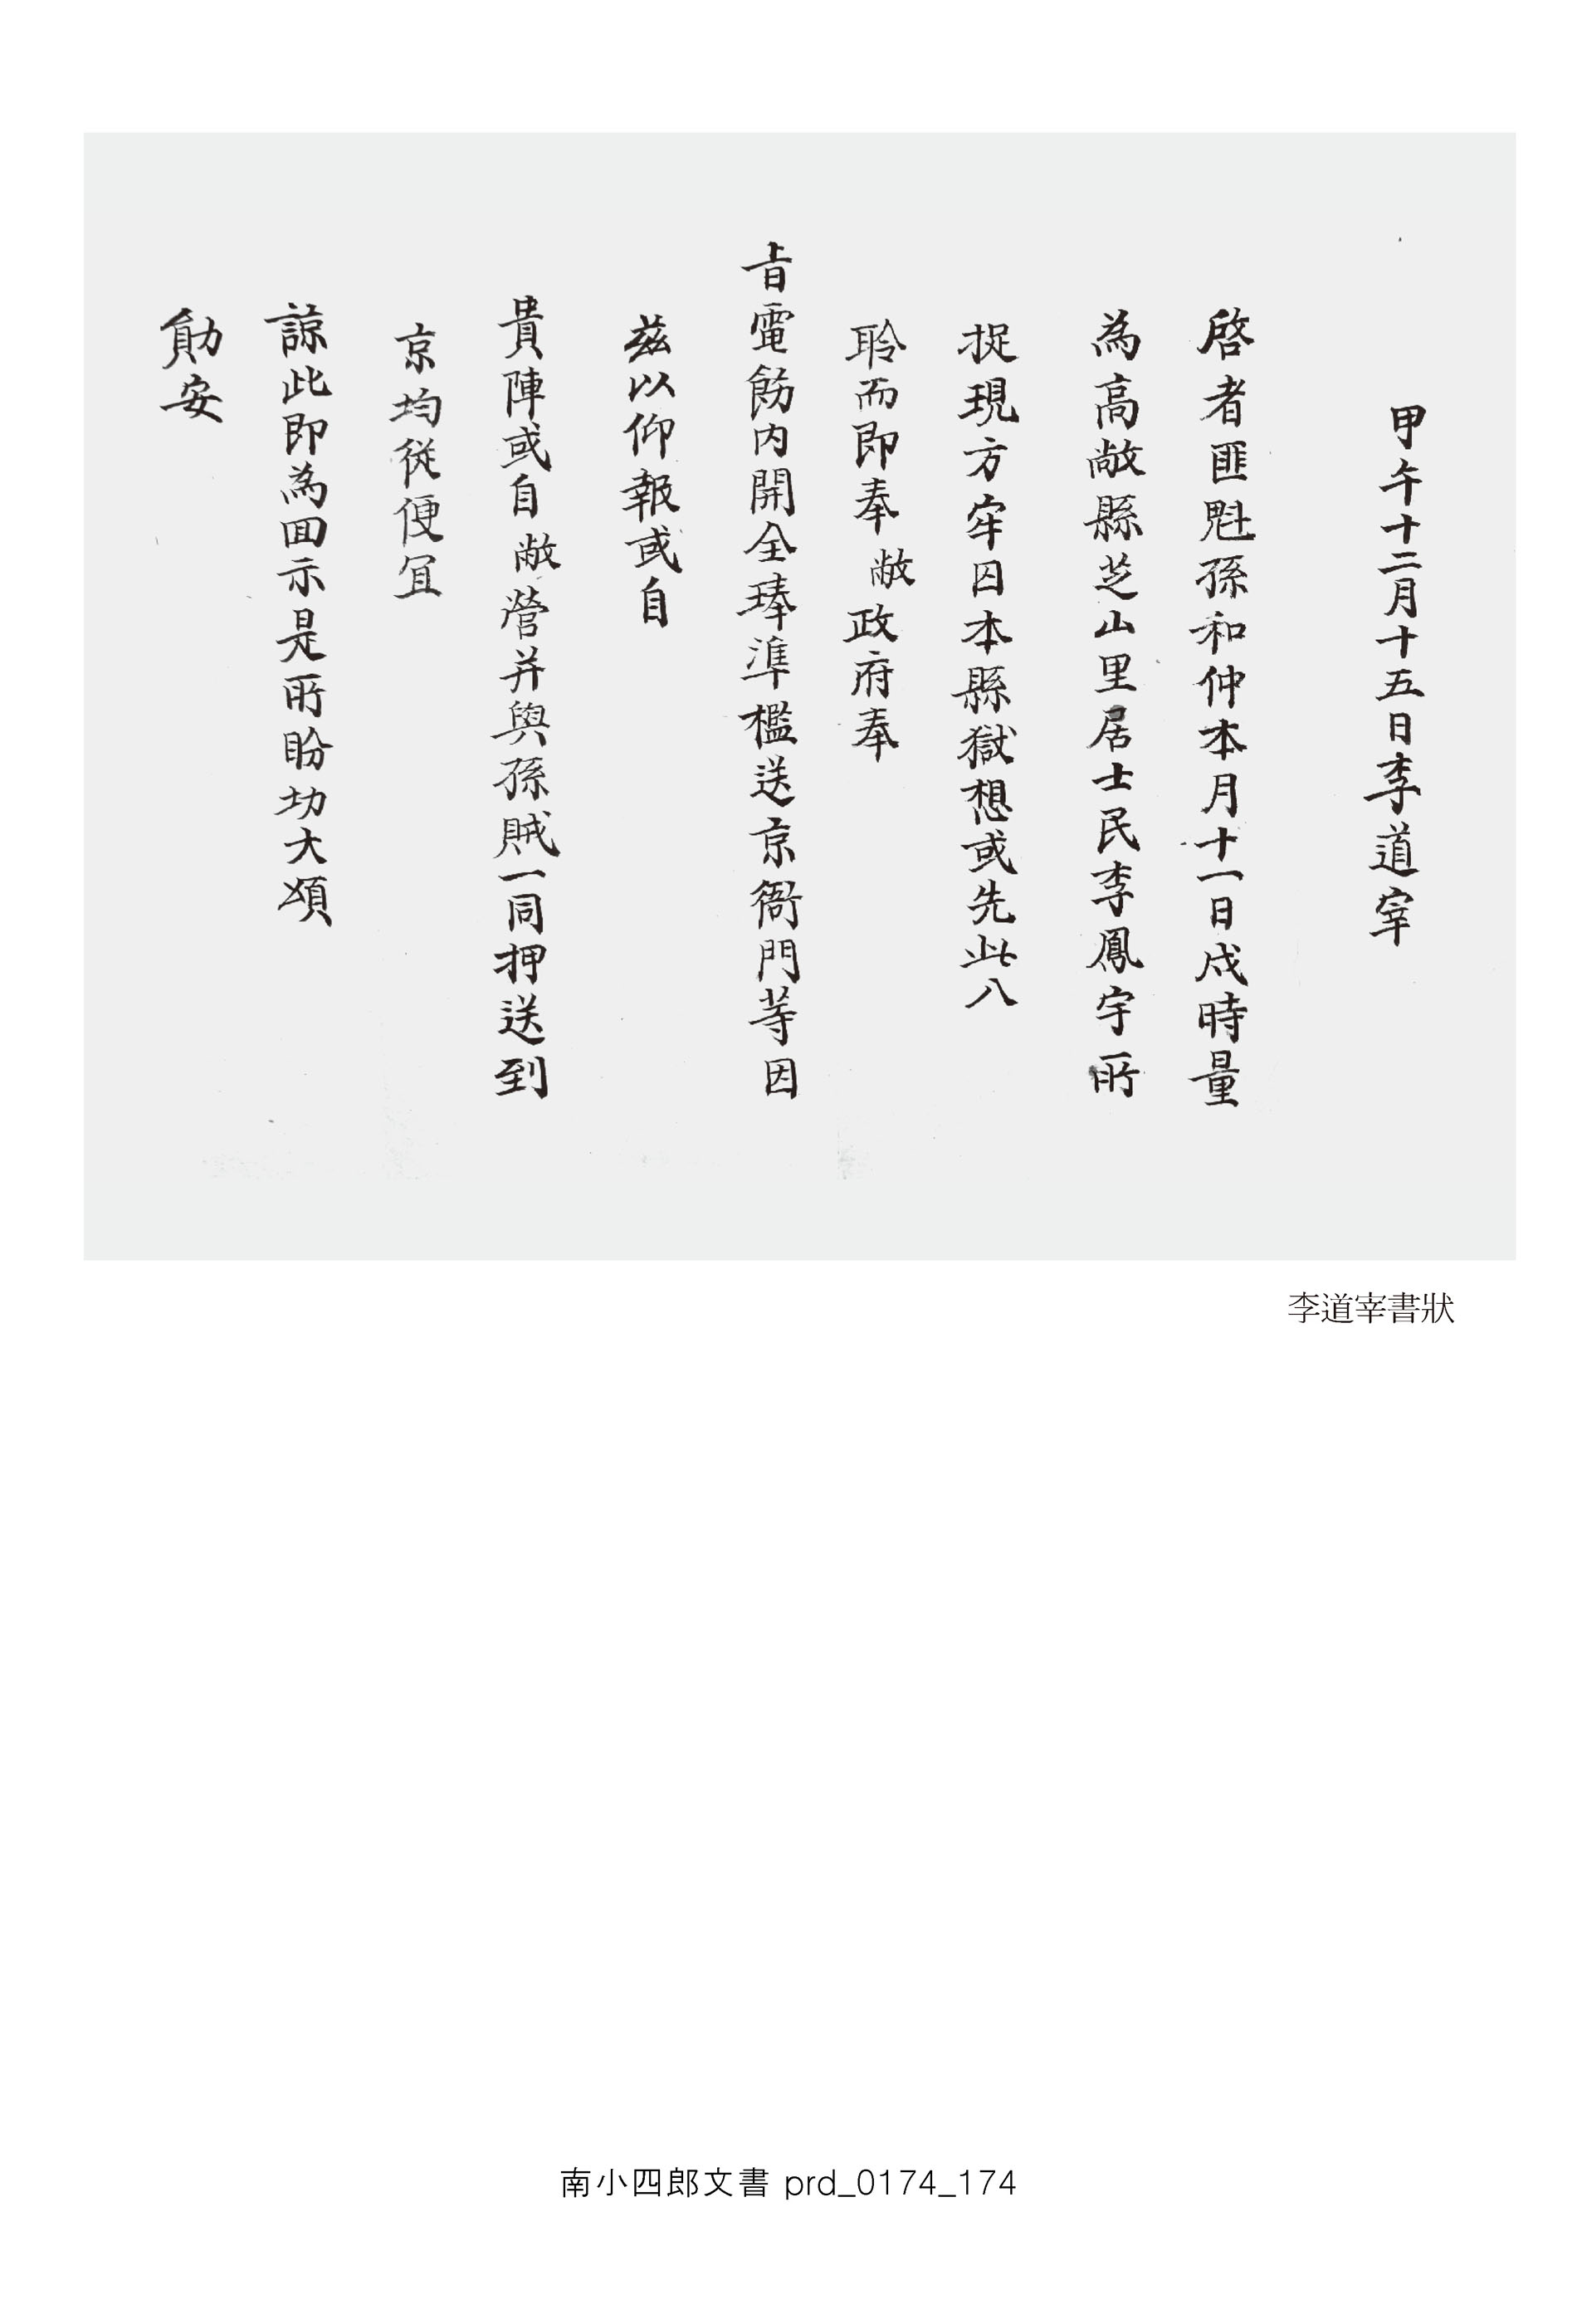 甲午十二月十五日李道宰
啓者匪魁孫和仲本月十一日戌時量
為高敞縣芝山里居士民李鳳宇所
捉現方牢囚本縣獄想或先此入
聆而即奉敝政府奉
旨電飭内開全琫準檻送京衙門等因
茲以仰報或自
貴陣或自敝營并與孫賊一同押送到
京均從便宜
諒此即為回示是所盼切大頌
勛安
李道宰書狀
南小四郎文書 prd_0174_174